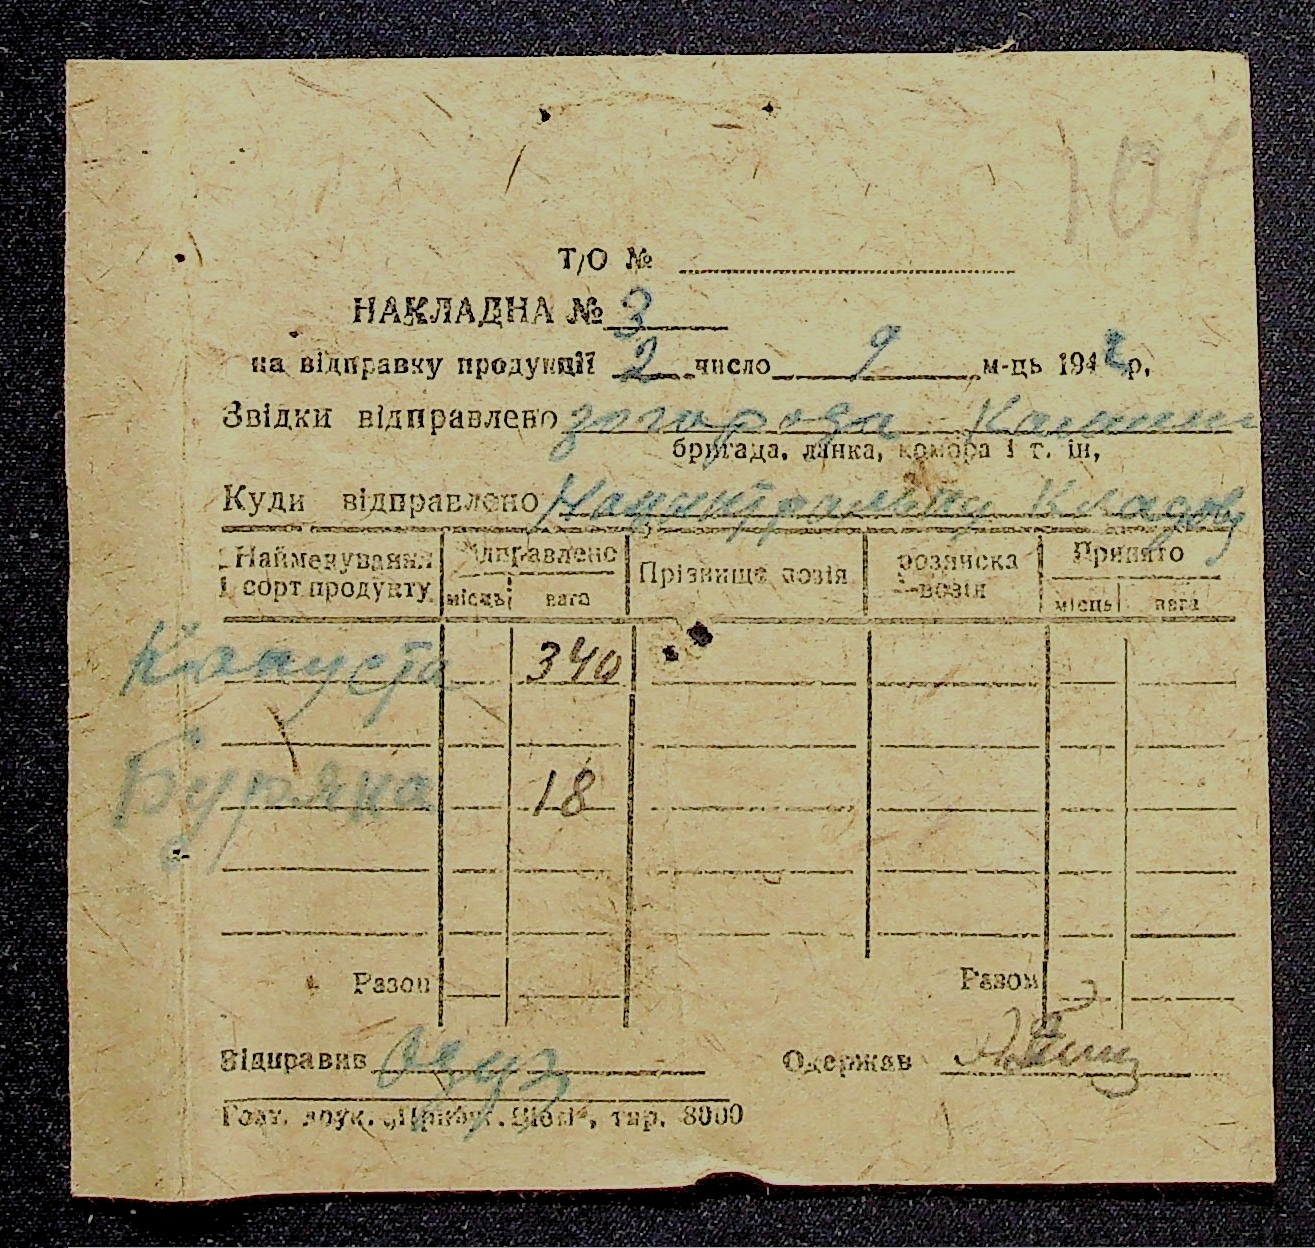 107
Т/О №
НАКЛАДНА № 3
на відправку продукції 2 число 9 м-ць 1942 р.
Звідки відправлено зогорода
бригада, ланка, комора і т. ін,
Куди відправлено Нацинтральну Кладову
Найменування і сорт продукту Відправлено місць вага Прізвище возія розписка возія Принято місць вага
Капуста 340
Буряка 18
Разом Разом
Відправив Одержав
тир. 8000